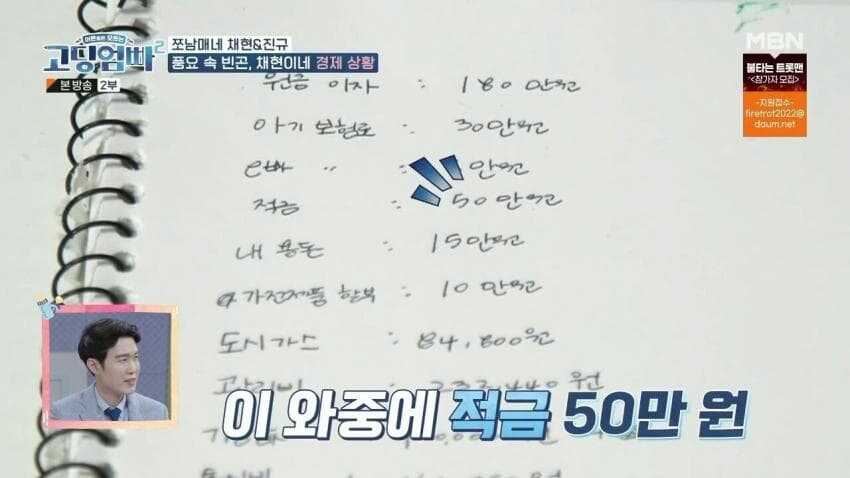 어른들은 모르는
고딩엄빠2
본 방송 2부
쪼남매네 채현&진규
풍요 속 빈곤, 채현이네 경제 상황
MBN
불타는 트롯맨
<참가자 모집>
-지원접수-
firetrot2022@
daum.net
원금 이자 : 180 만원
아기 보험료 : 30만원
만원
적금 : 50 만원
내 용돈 : 15만원
가전제품 할부 : 10 만원
도시가스 : 84,800원
관리비
이 와중에 적금 50만 원